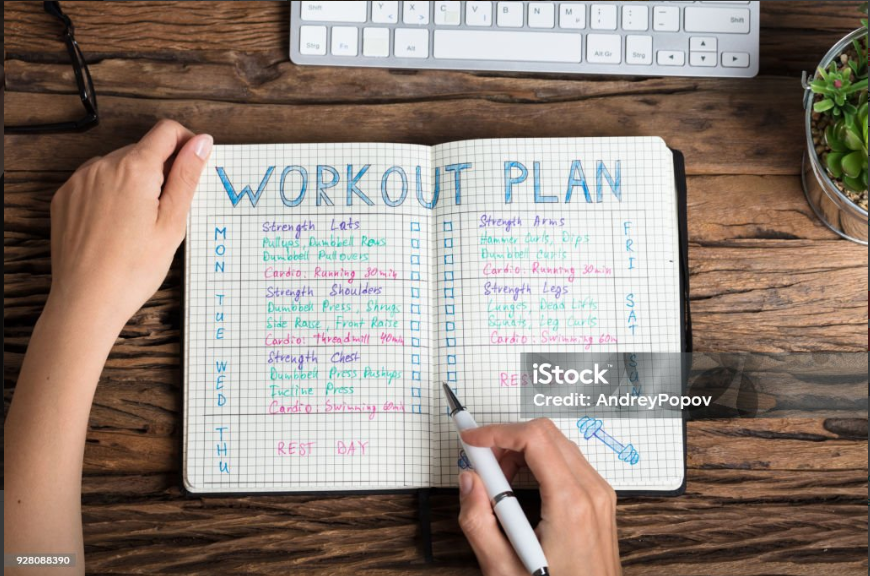 Shift Y X C V B N M ; : - Shift
Strg Fn Alt Alt Gr Strg
WORKOUT PLAN
MON
Strength Lats
Pullups, Dumbbell Rows
Dumbbell Pullovers
Cardio: Running 30min
TUE
Strength Shoulders
Dumbbell Press, Shrugs
Side Raise, Front Raise
Cardio: Threadmill 40min
WED
Strength Chest
Dumbbell Press Pushups
Incline Press
Cardio: Swimming 60min
THU
REST DAY
Strength Arms
FRI
Hammer Curls, Dips
Dumbbell curls
Cardio: Running 30min
Strength Legs
SAT
Lunges, Dead Lifts
Squats, Leg Curls
Cardio: Swimming 60m
RES
iStock
Credit: AndreyPopov
928088390